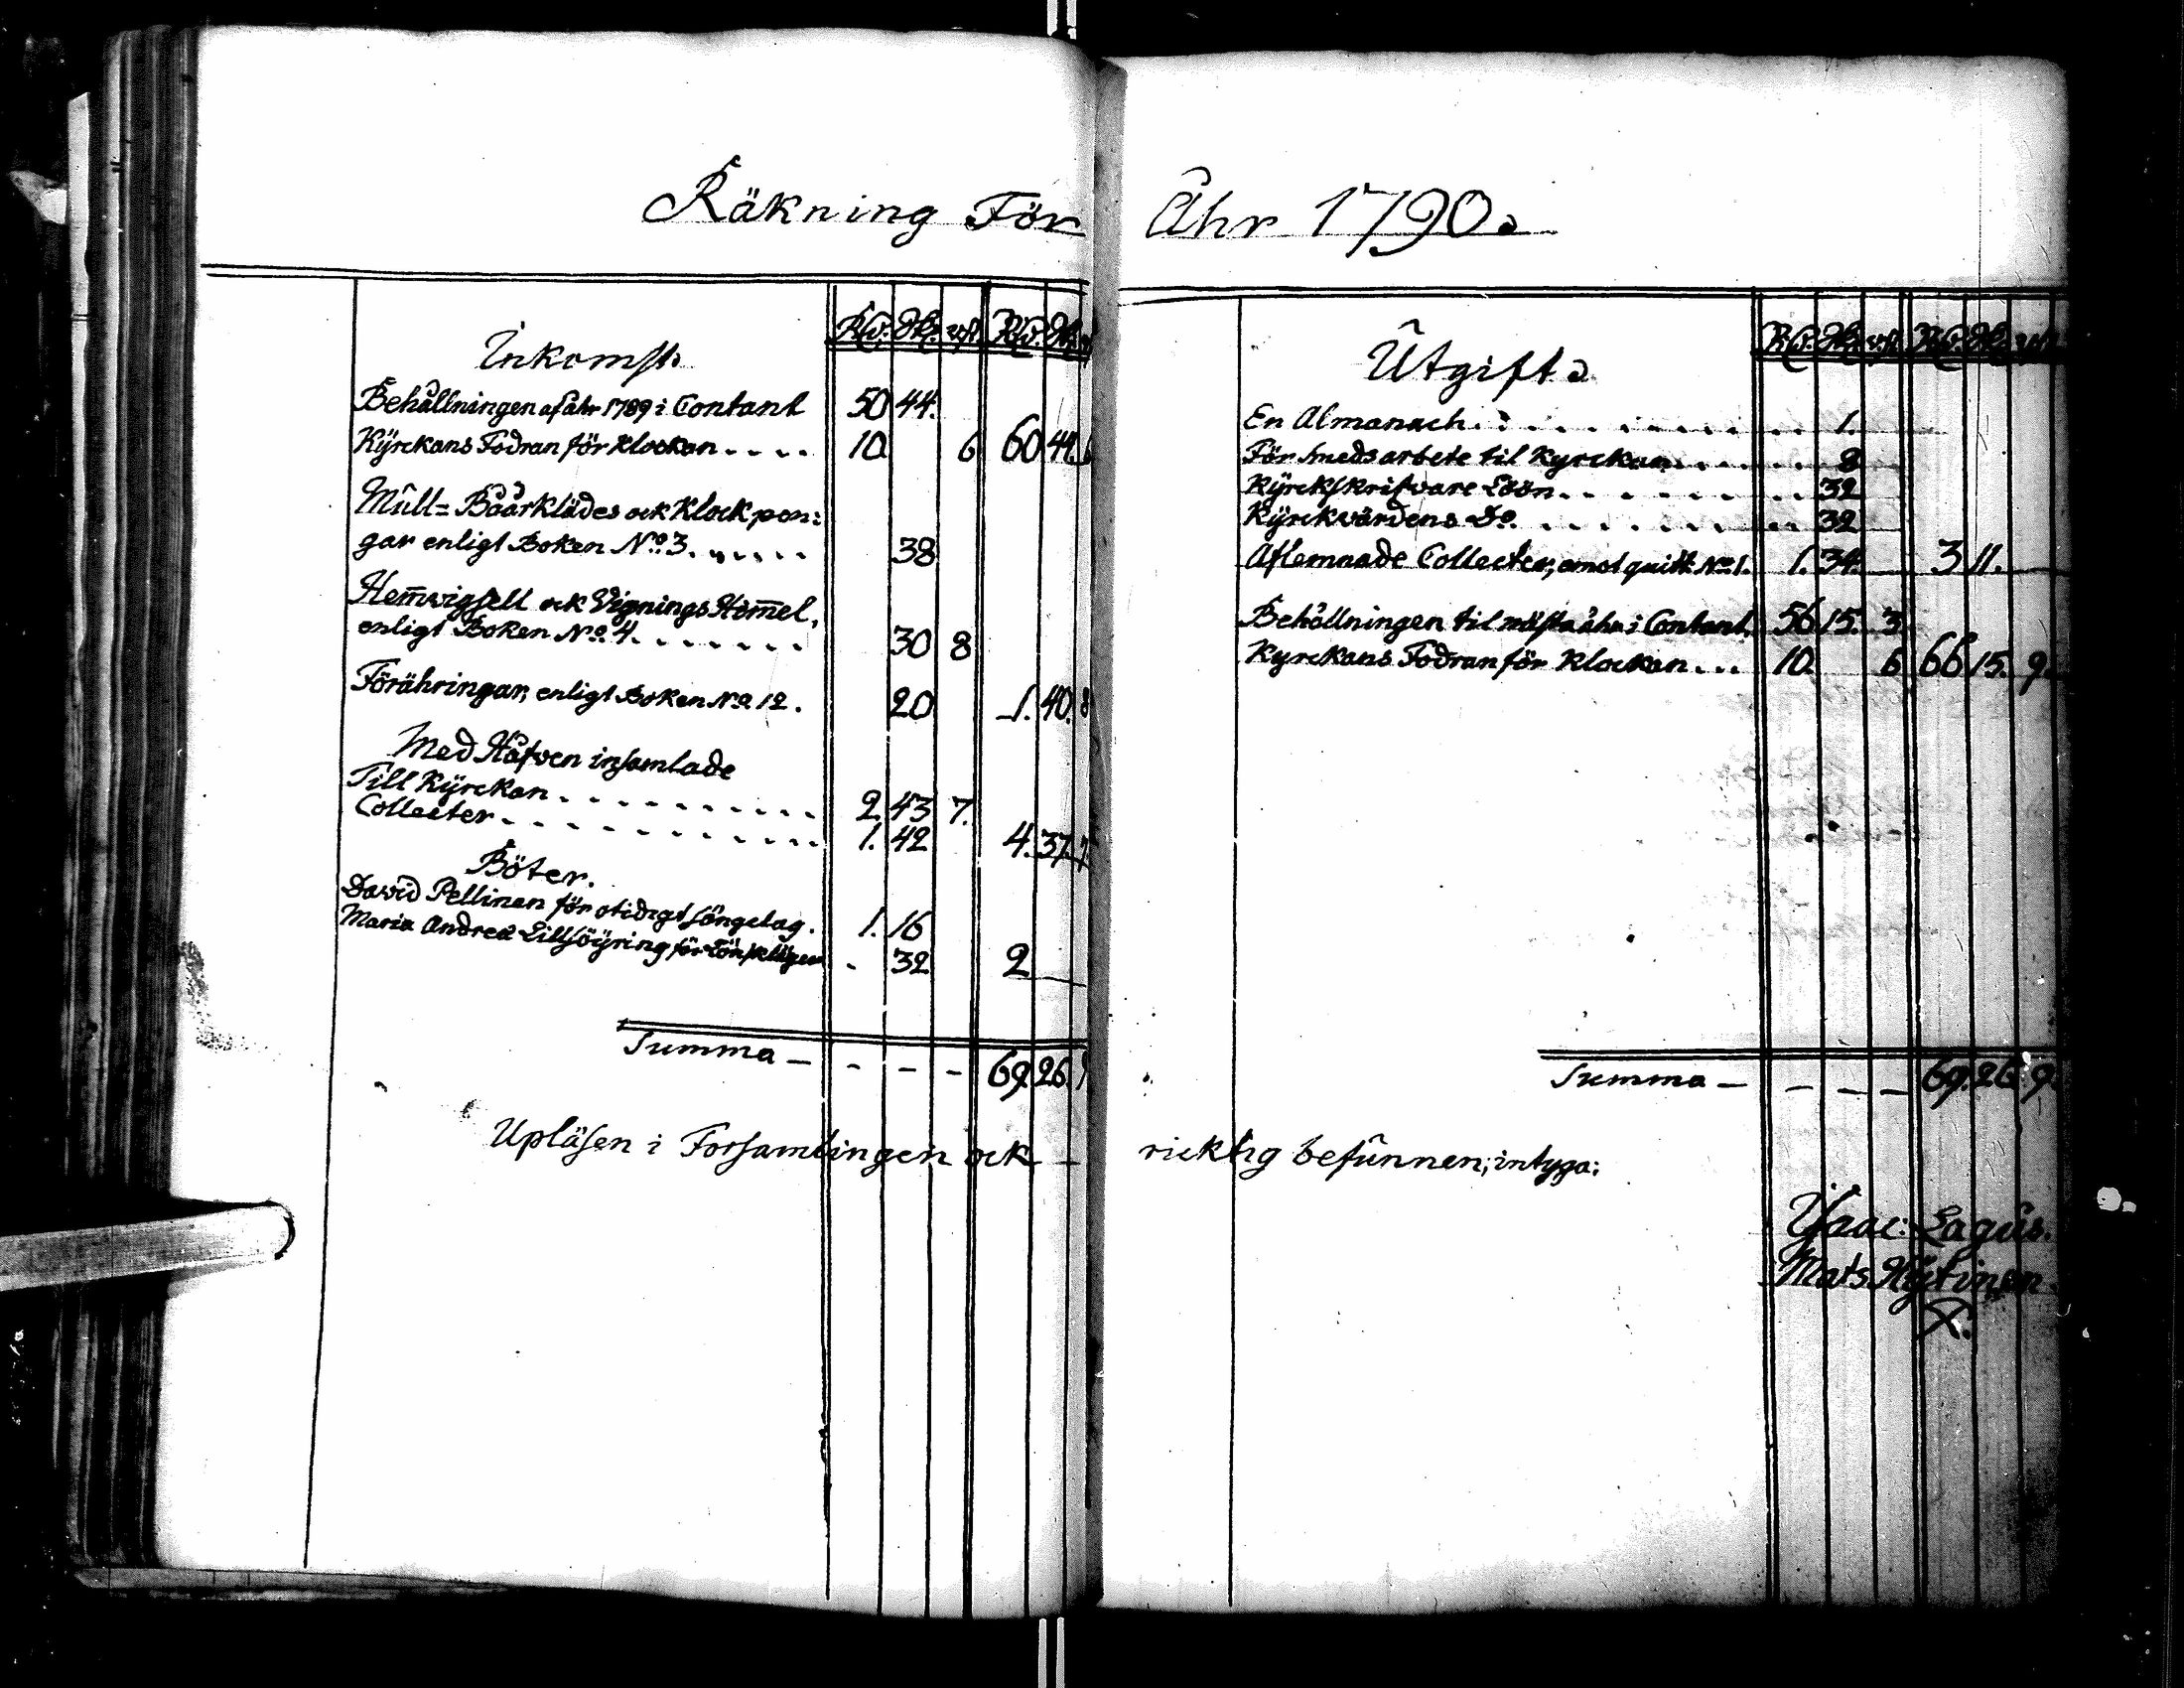 Räkning För Åhr 1790.
Inkomst.
Rd. sk. rst. Rd. sk.
Behållningen af åhr 1789 i Contant 50 44.
Kÿrckans Fodran för klockan 10 6 60 44. 6
Mull= Båårklädes ock Klockpen:
gar enligt Boken No. 3. 38
Hemvigsell ock Vignings Himmel,
enligt Boken No. 4. 30 8
Förähringar, enligt Boken No. 12. 20 1. 40. 8
Med Håfven insamlade
Till Kÿrckan 2. 43 7.
Collecter 1. 42 4. 37. 7.
Böter.
David Pellinen för otidigt sängelag. 1. 16
Maria Andred: Lillsöÿring för - 32 2
Summa - - - - 69. 26.
Upläsen i Forsamlingen ock -
Utgift.
Rd. sk. rst. Rd. sk. rst.
En Almanach 1.
För smedsarbete til Kyrckan 8
Kÿrckskrifvare Löön 32
Kÿrckvärdens Do. 32
Aflemnade Collecter, emot quitt: No. 1. 1. 34. 3 11.
Behållningen til nästa åhr i Contant 56 15. 3
Kyrckans Fodran för klockan 10. 6 66 15. 9.
Summa - - - - 69. 26. 9
ricktig befunnen; intyga:
Isaac: Lagus.
Mats Hÿtinen.
X.